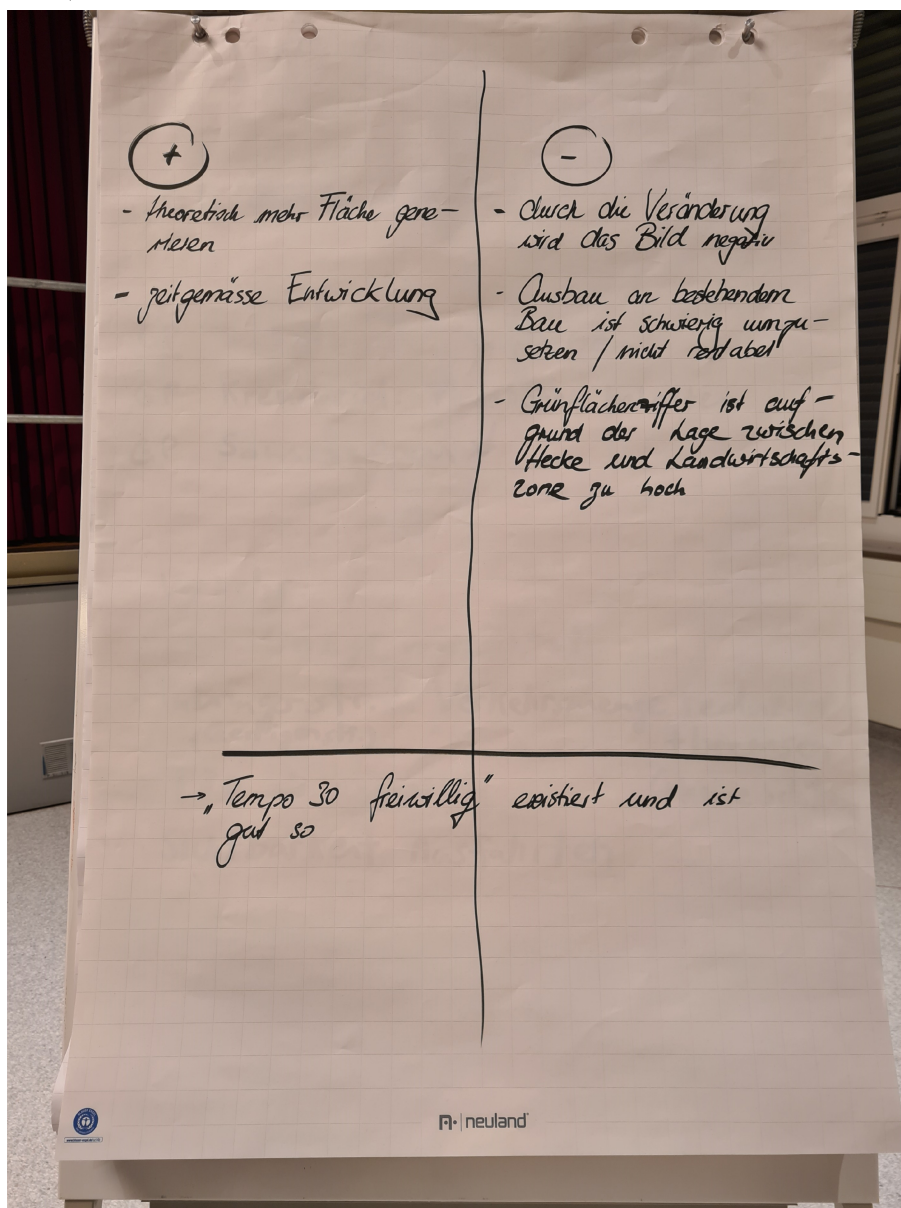 +
- theoretisch mehr Fläche gene-
rieren
- zeitgemässe Entwicklung
-
- durch die Veränderung
wird das Bild negativ
- Ausbau an bestehendem
Bau ist schwierig umzu-
setzen / nicht rentabel
- Grünflächenziffer ist auf-
grund der Lage zwischen
Hecke und Landwirtschafts-
zone zu hoch
→ „Tempo 30 freiwillig" existiert und ist
gut so
neuland